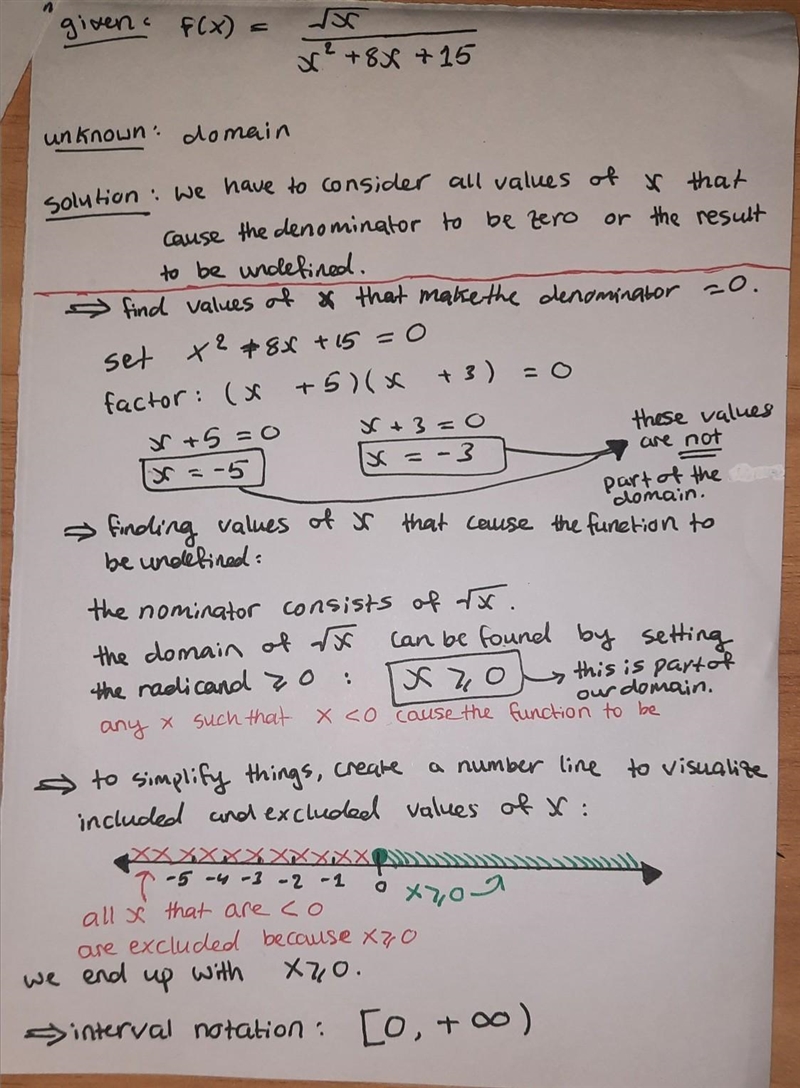 given: F(x) = √x / x² + 8x + 15
unknown: domain
solution: we have to consider all values of x that
cause the denominator to be zero or the result
to be undefined.
⇒ find values of x that make the denominator = 0.
set x² + 8x + 15 = 0
factor: (x + 5)(x + 3) = 0
x + 5 = 0 x + 3 = 0
x = -5 x = -3
these values
are not
part of the
domain.
⇒ finding values of x that cause the function to
be undefined:
the nominator consists of √x.
the domain of √x can be found by setting
the radicand ⩾ 0 : x ⩾ 0 → this is part of
our domain.
any x such that x < 0 cause the function to be
⇒ to simplify things, create a number line to visualize
included and excluded values of x :
-5 -4 -3 -2 -1 0 x ⩾ 0
all x that are < 0
are excluded because x ⩾ 0
we end up with x ⩾ 0.
⇒ interval notation: [0, + ∞)